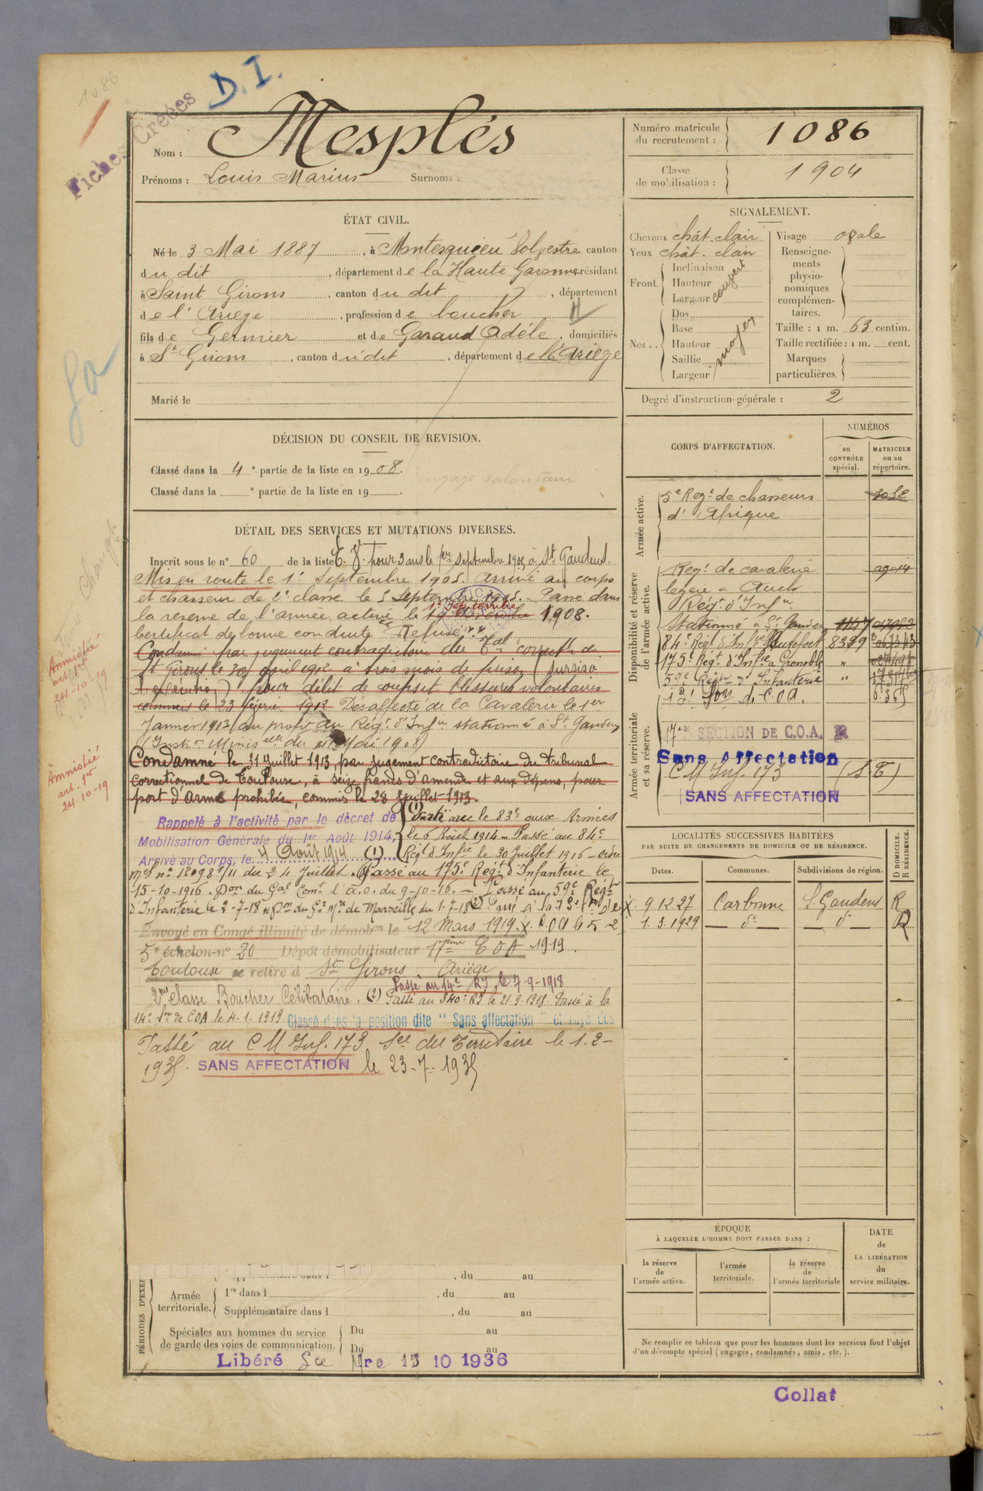 1086
Fiches Créées
D. I.
Nom : Mesplés
Prénoms : Louis Marius Surnoms :
Numéro matricule du recrutement : 1086
Classe de mobilisation : 1904
ÉTAT CIVIL.
Né le 3 Mai 1887, à Montesquieu Volvestre canton
du dit, département de la Haute Garonne résidant
à Saint Girons, canton du dit, département
de l'Ariège, profession de boucher
fils de Germier et de Garaud Adèle, domiciliés
à St Girons, canton du dit, département de l'Ariège
Marié le
SIGNALEMENT.
Cheveux chât. clair
Yeux chât. clair
Front. Inclinaison
Hauteur
Largeur
couvert
Nez .. Dos
Base
Hauteur
Saillie
Largeur
moyen
Visage ovale
Renseignements physionomiques complémentaires.
Taille : 1 m. 63 centim.
Taille rectifiée : 1 m. cent.
Marques particulières.
Degré d'instruction générale : 2
DÉCISION DU CONSEIL DE REVISION.
Classé dans la 4e partie de la liste en 1908.
Classé dans la e partie de la liste en 19 .
engagé volontaire
DÉTAIL DES SERVICES ET MUTATIONS DIVERSES.
Inscrit sous le n° 60 de la liste E. V. pour 3 ans le 1er septembre 1905 à St Gaudens.
Mis en route le 1er Septembre 1905. Arrivé au corps
et chasseur de 2e classe le 5 Septembre 1905. Passé dans
la réserve de l'armée active le 1er Septembre 1908.
Certificat de bonne conduite "Refusé".
Condamné par jugement contradictoire du Tal correctl de
St Girons le 30 avril 1912 à trois mois de prison (sursis
) pour délit de coups et blessures volontaires
commis le 23 février 1912. Désaffecté de la Cavalerie le 1er
Janvier 1913 (au profit du Régt d'Infie stationné à St Gaudens
(Instr Minislle du 21 Mai 19
Condamné le 31 juillet 1913 par jugement contradictoire du tribunal
correctionnel de Toulouse, à seize francs d'amende et aux dépens, pour
port d'arme prohibée, commis le 28 juillet 1913.
Rappelé à l'activité par le décret de
Mobilisation Générale du 1er Août 1914,
Arrivé au Corps, le 4 Août 1914 (1)
(1) Parti avec le 83e aux Armées
le 6 Août 1914 - Passé au 84e
Régt d'Infie le 30 Juillet 1916 - ordre
mel n° 18098 9/11 du 24 Juillet. Passé au 175e Régt d'Infanterie le
15-10-1916. Don du Gal Comt l'A.O. du 9-10-16. - Passé au 59e Régt
d'Infanterie le 2-7-18 Don du Gt Mre de Marseille du 1-7-18
Envoyé en Congé illimité de démobon le 12 Mars 1919.
5e échelon n° 20 Dépôt démobilisateur 17ème COA 1919.
Toulouse se retire à St Girons Ariège
Passé au 14e R.I. le 7-9-1918
2me Classe Boucher Célibataire. (2) Passé au 340e RI le 21.9.1918. Passé à la
14e Son de COA le 4-1-1919 Classé dans la position dite "Sans affectation"
Passé au C M Inf. 173 Son du Territoire le 1-2-
1935. SANS AFFECTATION le 23-7-1935
Amnistié
24-10-19
Amnistié
art. 1er
24-10-19
CORPS D'AFFECTATION.
NUMÉROS
au CONTRÔLE spécial.
MATRICULE ou au répertoire.
Armée active.
5e Regt de chasseurs
d'Afrique
Disponibilité et réserve de l'armée active.
Régt de cavalerie
légère - Auch
Régt d'Infie
Stationné à St Gaudens
84e Régt d'Infie 8379
175e Régt d'Infie Grenoble "
59e Régt d'Infanterie "
Armée territoriale et sa réserve.
17e SECTION DE C.O.A. R
Sans Affectation
C M Inf. 173 (S T)
SANS AFFECTATION
LOCALITÉS SUCCESSIVES HABITÉES
PAR SUITE DE CHANGEMENTS DE DOMICILE OU DE RÉSIDENCE.
Dates. Communes. Subdivisions de région. D DOMICILE. R RÉSIDENCE.
9.12.27 Carbonne St Gaudens R
1.3.1929 do do R
ÉPOQUE
À LAQUELLE L'HOMME DOIT PASSER DANS :
la réserve de l'armée active.
l'armée territoriale.
la réserve de l'armée territoriale
DATE de LA LIBÉRATION du service militaire.
PÉRIODES D'EXER
, du au
Armée territoriale. 1re dans l , du au
Supplémentaire dans l , du au
Spéciales aux hommes du service de garde des voies de communication. Du au
Du au
Libéré Sce Mre 15 10 1936
Ne remplir ce tableau que pour les hommes dont les services font l'objet
d'un décompte spécial (engagés, condamnés, omis, etc.).
Collat